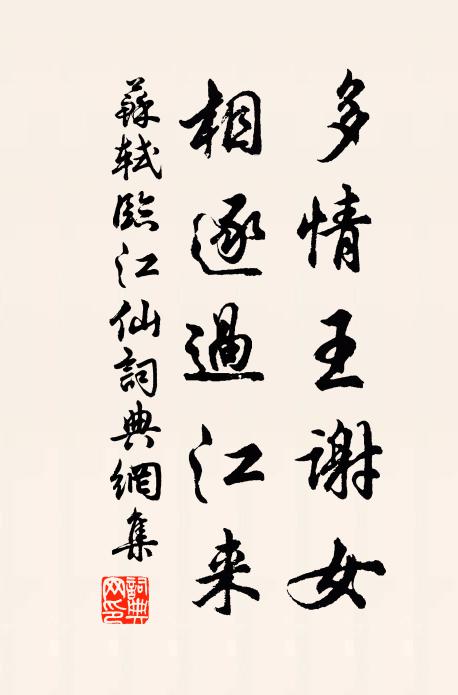 多情王谢女
相逐過江来
蘇軾臨江仙詞典網集
詞典網印